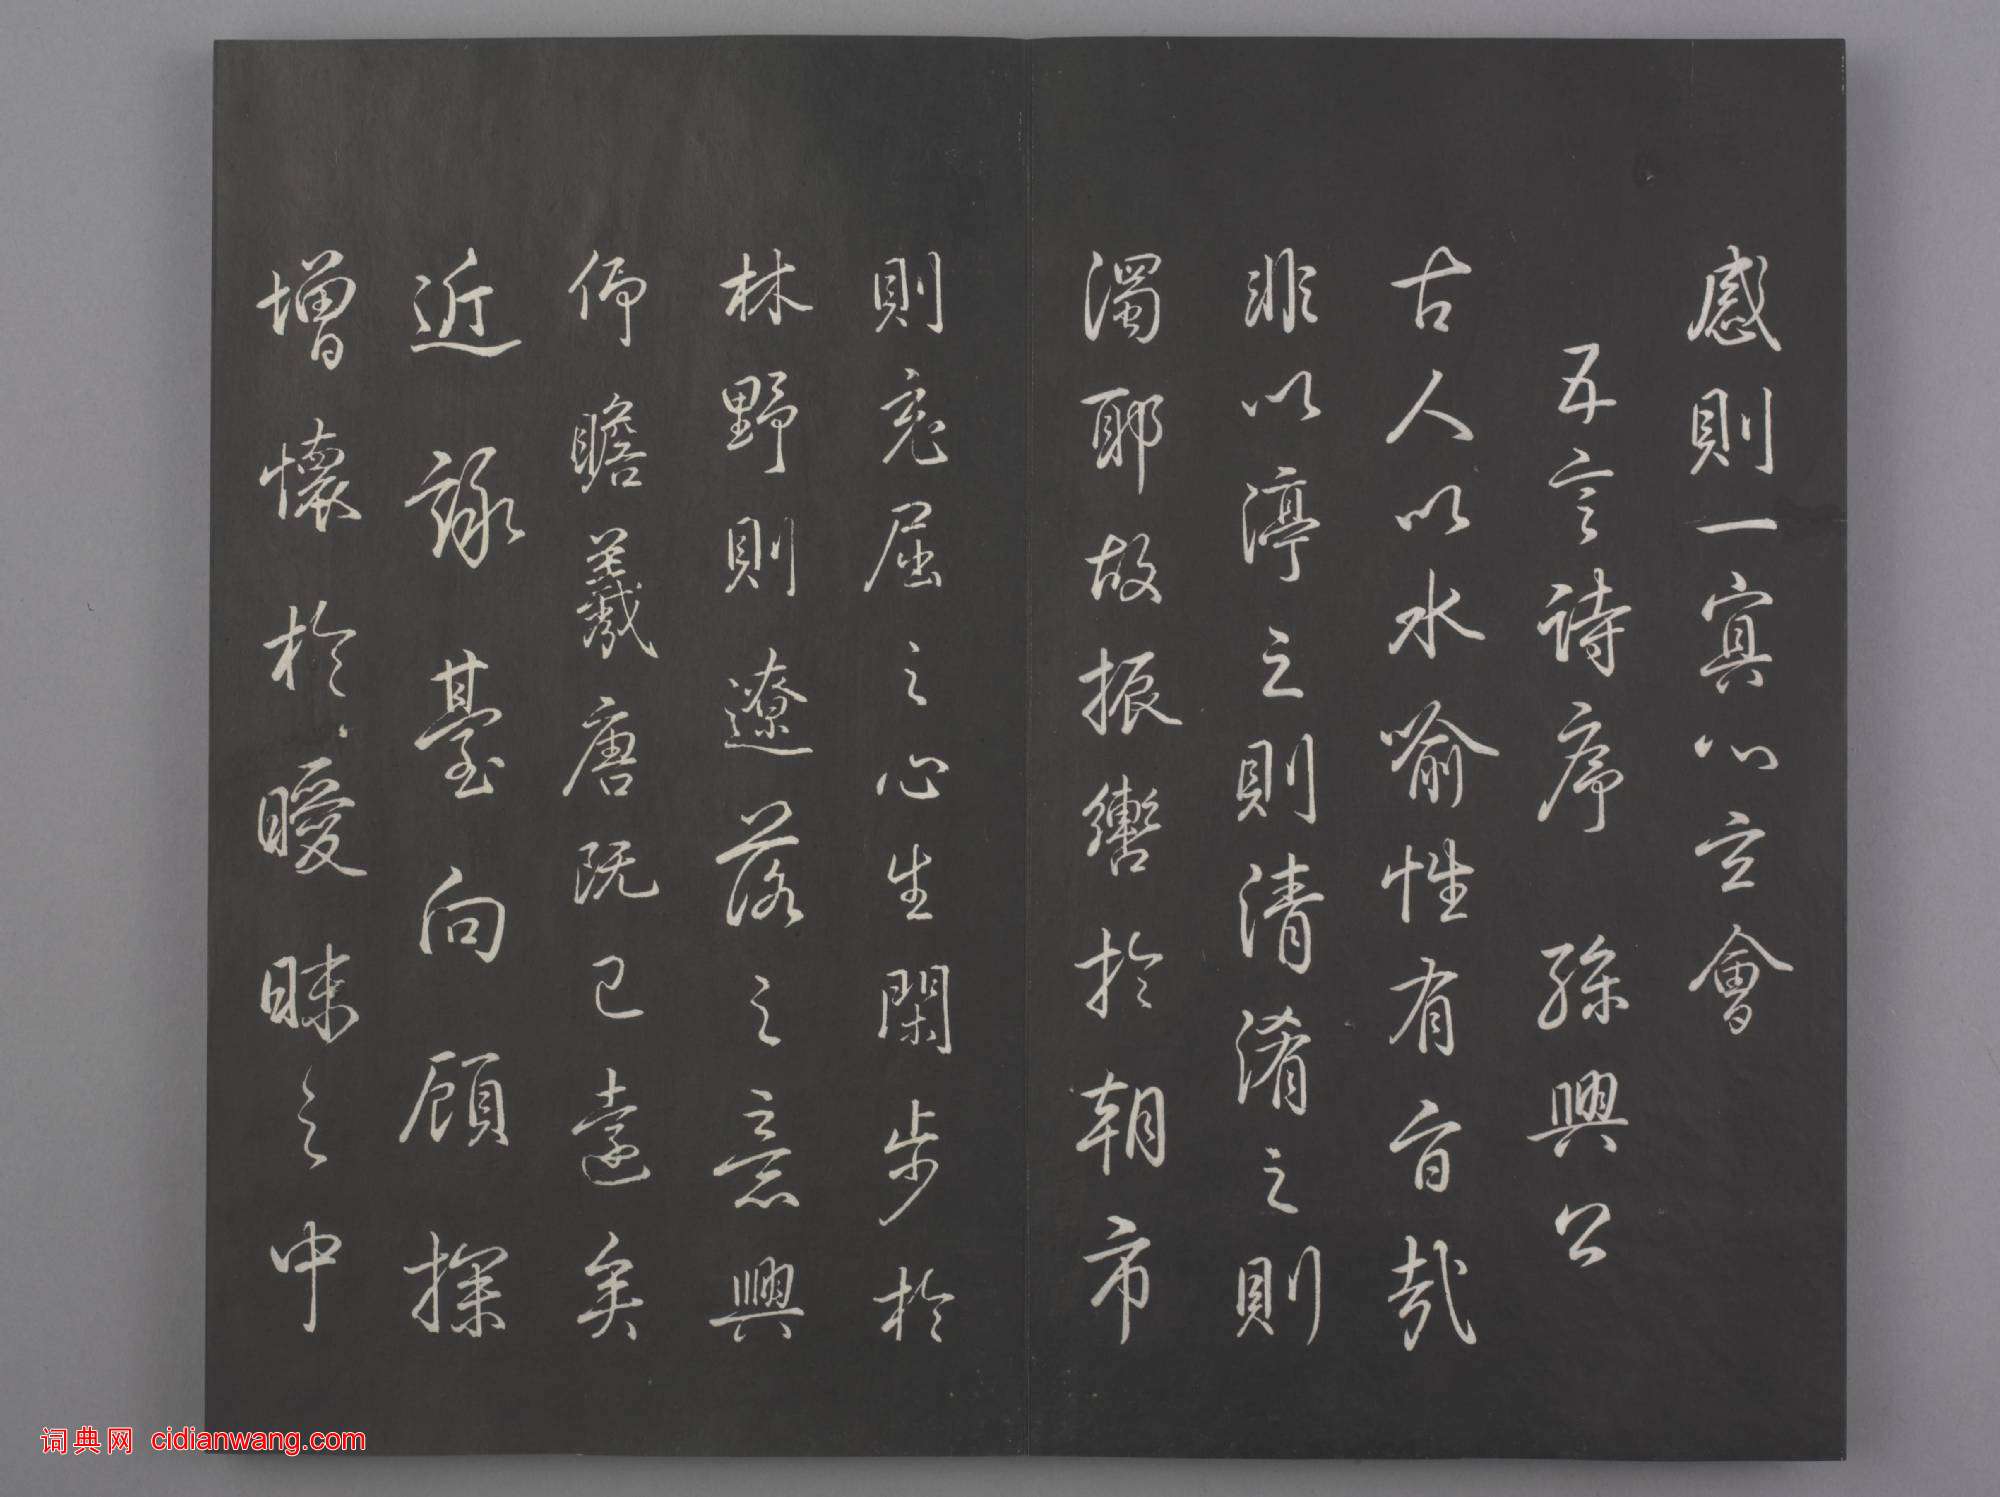 感則一冥心立會
五言詩序 孫興公
古人以水喻性有旨哉
非以渟之則清淆之則
濁耶故振轡於朝市
則充屈之心生閑步於
林野則遼落之意興
仰瞻羲唐既已遠矣
近詠臺向顧探
增懷於曖昧之中
词典网 cidianwang.com